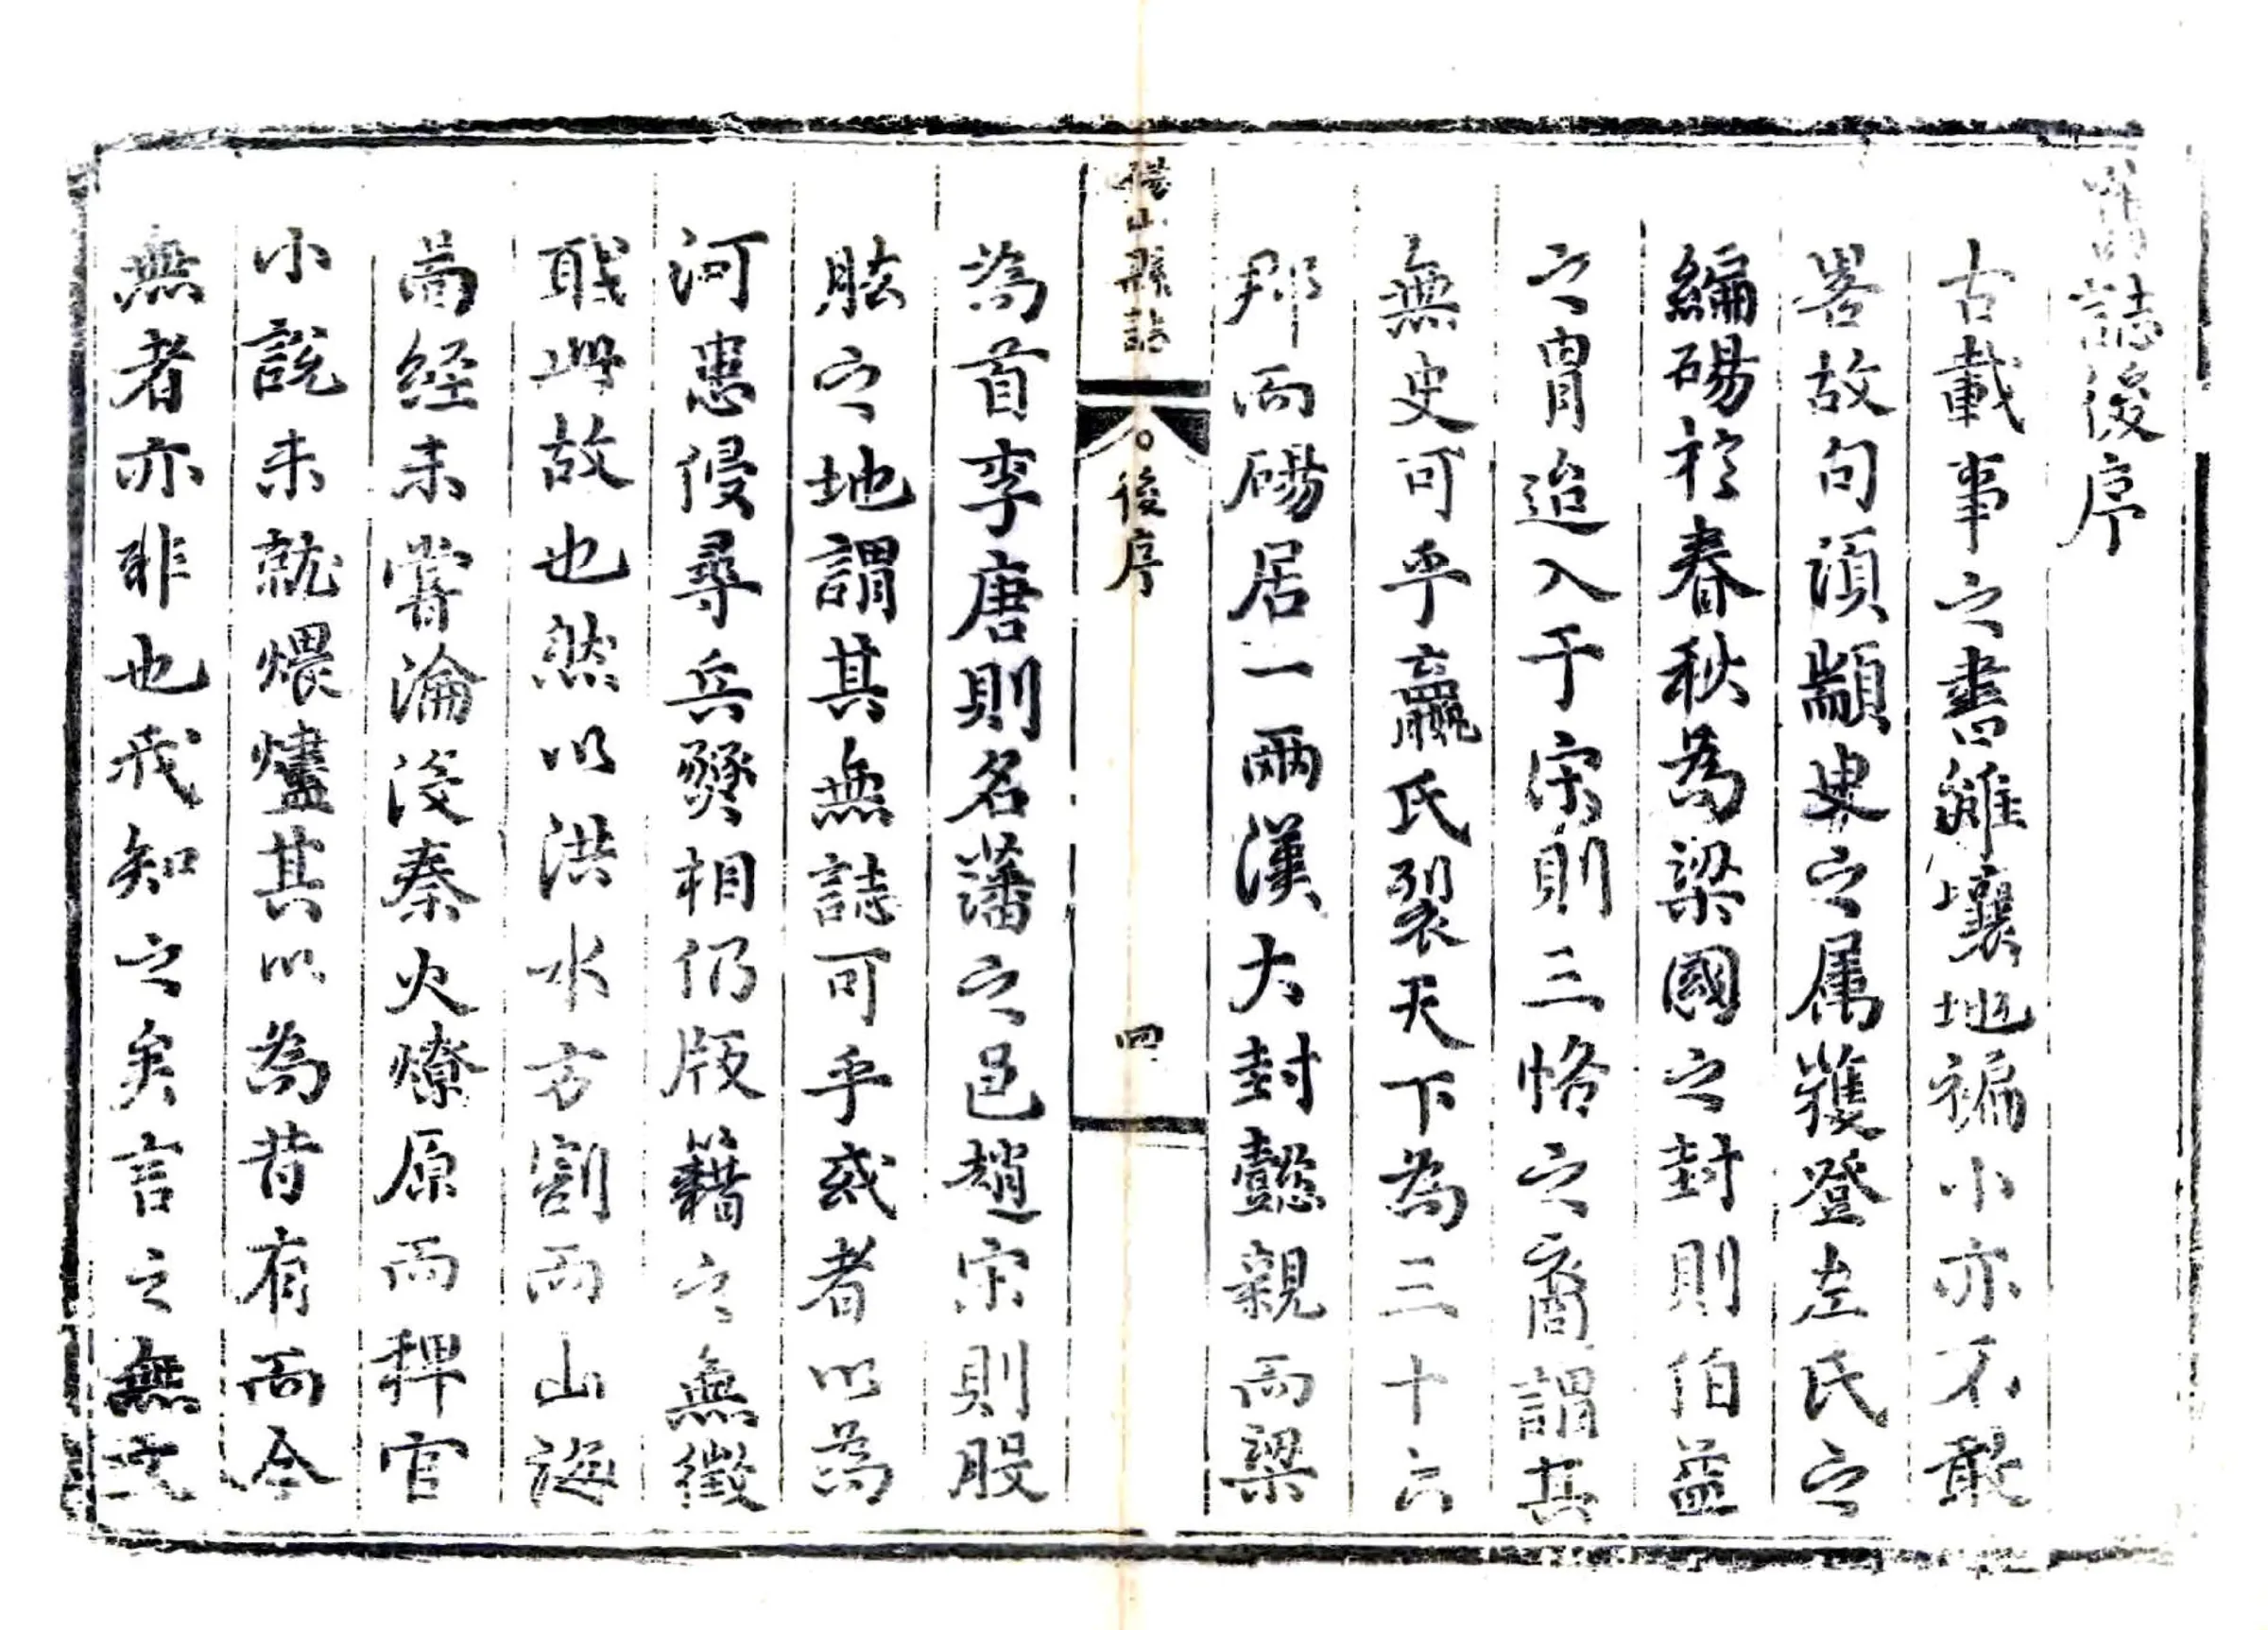 誌後序
古載事之書雖壤地褊小亦不敢
畧故句須顓臾之属獲登左氏之
編碭於春秋為梁國之封則伯益
之胄迨入于宋則三恪之裔謂其
無史可乎嬴氏裂天下為三十六
郡而碭居一兩漢大封懿親而梁
碭山縣誌
後序
四
為首李唐則名藩之邑趙宋則股
肱之地謂其無誌可乎或者以為
河患侵尋兵燹相仍版籍之無徵
職此故也然以洪水方割而山海
啚经未嘗淪沒秦火燎原而稗官
小說未就煨燼其以為昔有而今
無者亦非也我知之矣言之無文